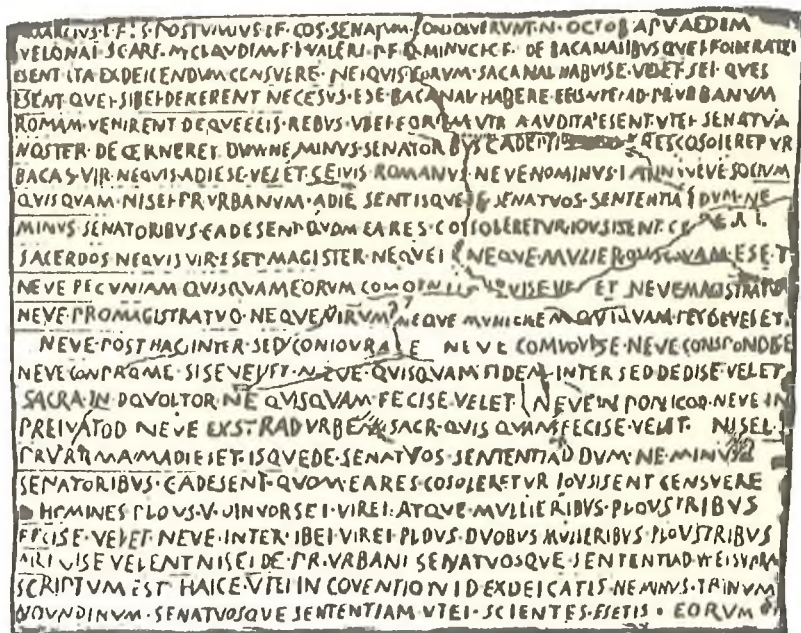 MARCIVS·L·F·S·POSTVMIVS·L·F·COS·SENATVM·CONSOLVERVNT·N·OCTOB APVD AEDEM
VELONAI·SC·ARF·M·CLAVDI M·F·L·VALERI·P·F·Q·MINVCI·C·F· DE BACANALIBVS QVEI FOIDERATEI
ESENT·ITA EXDEICENDVM CENSVERE·NEIQVIS EORVM·SACANAL HABVISE·VELET·SEI·QVES
ESENT·QVEI·SIBEI DEICERENT NECESVS·ESE·BACANAL HABERE·EEIS VTEI AD·PR VRBANVM
ROMAM·VENIRENT DE QVE EEIS·REBVS·VBEI EORVM VTR A AVDITA ESENT·VTEI·SENATVS
NOSTER·DECERNERET·DVM NE MINVS·SENATORIBVS C ADESENT RES COSOLERETVR
BACAS·VIR·NEQVIS ADIESE·VELET·CEIVIS ROMANVS·NEVE NOMINVS·LATINI NEVE SOCIVM
QVISQVAM·NISEI PR VRBANVM·ADIESENT ISQVE DE SENATVOS·SENTENTIA DVM·NE
MINVS·SENATORIBVS·C ADESENT QVOM EA RES·COSOLERETVR IOVSISENT·CE
SACERDOS NEQVIS VIR ESET MAGISTER·NEQVE NEQVE·MVLIER QVISQVAM ESE·T
NEVE PECVNIAM QVISQVAM EORVM COMOINEM HABVISE VE ET NEVE MAGISTRATVM
NEVE·PROMAGISTRATVO·NEQVE VIRVM NEQVE MVLIEREM QVIQVAM FECISE VELET
NEVE·POST HAC INTER·SED CONIOVRASE NEVE COMVOVISE·NEVE CONSPONDISE
NEVE CONPROME·SISE VELET·NEVE·QVISQVAM FIDEM·INTER SED DEDISE·VELET
SACRA IN DQVOLTOD·NE QVISQVAM·FECISE·VELET NEVE IN POPLICOD·NEVE IN
PREIVATOD NEVE EXSTRAD VRBEM SACR·QVISQVAM FECISE·VELET· NISEI
PR VRBANVM ADIESET·ISQVE DE·SENATVOS·SENTENTIAD DVM·NE·MINVS
SENATORIBVS·C ADESENT·QVOM·EA RES·COSOLERETVR IOVSISENT CENSVERE
HOMINES PLOVS·V·OINVORSEI·VIREI·ATQVE·MVLIERIBVS·PLOVSTRIBVS
FECISE·VELET NEVE·INTER·IBEI·VIREI·PLOVS·DVOBVS MVLIERIBVS·PLOVSTRIBVS
ARFVISE VELENT NISEI DE·PR·VRBANI SENATVOSQVE·SENTENTIAD VTEI SVPRA
SCRIPTVM EST HAICE·VTEI IN COVENTIONID EXDEICATIS·NE MINVS·TRINVM
NOVNDINVM·SENATVOSQVE SENTENTIAM VTEI·SCIENTES·ESETIS· EORVM